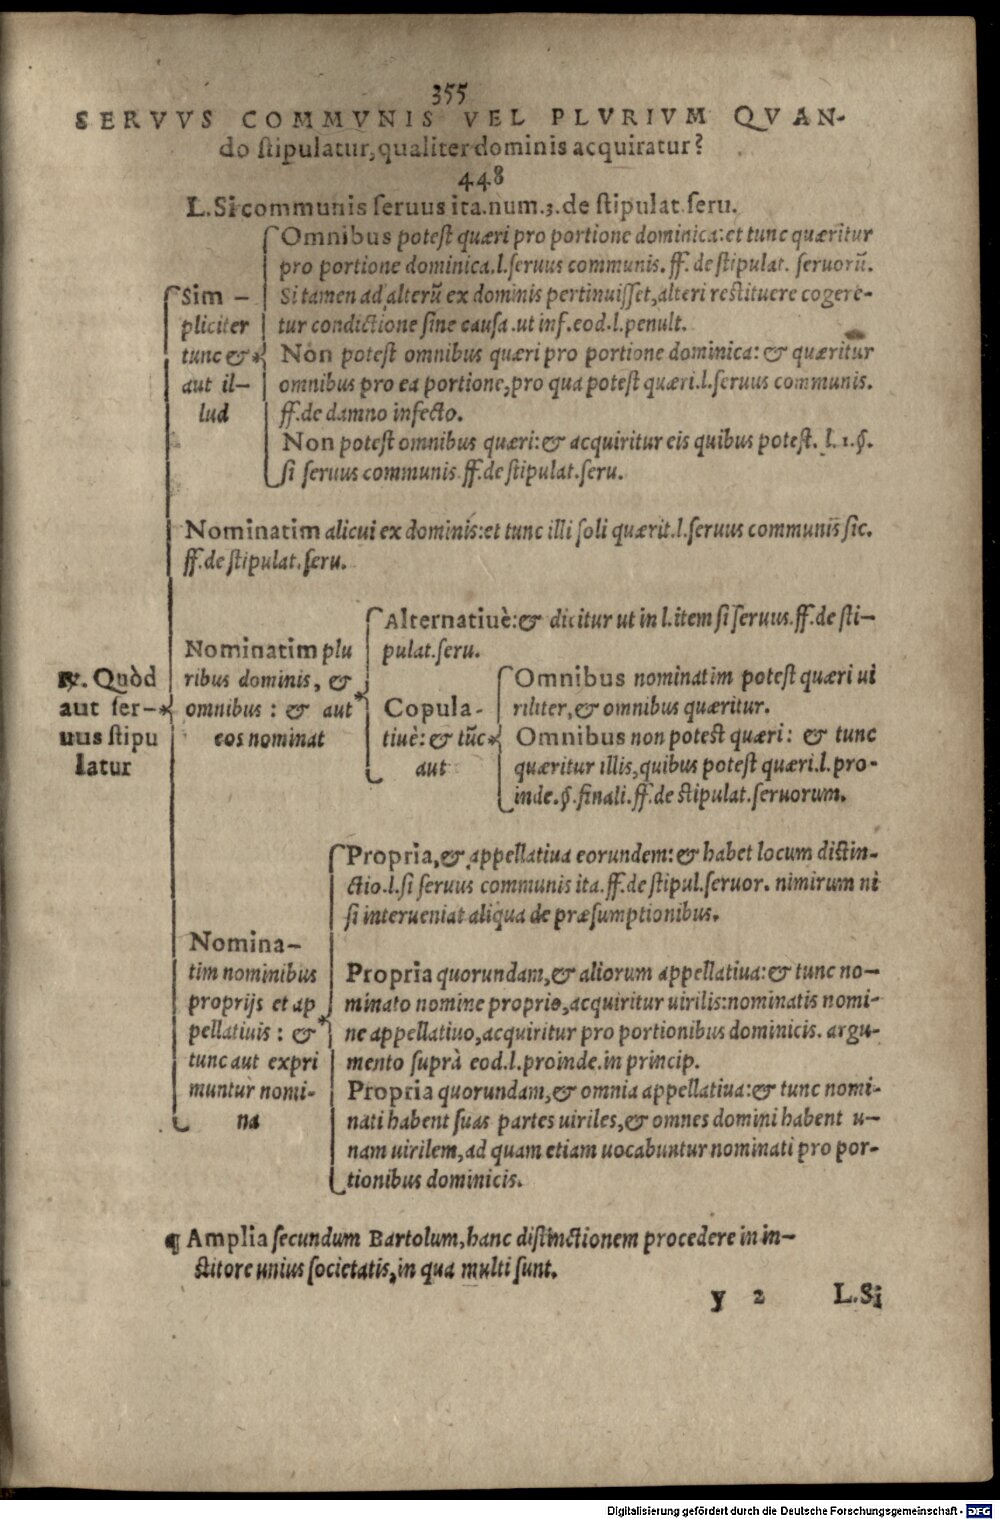 355
SERVVS COMMVNIS VEL PLVRIVM QVAN-
do stipulatur, qualiter dominis acquiratur?
448
L. Si communis seruus ita. num. 3. de stipulat. seru.
Omnibus potest quæri pro portione dominica: et tunc quæritur
pro portione dominica. l. seruus communis. ff. de stipulat. seruorũ.
Si tamen ad alterũ ex dominis pertinuisset, alteri restituere cogere-
tur condictione sine causa. ut inf. eod. l. penult.
Sim-
pliciter
tunc &
aut il-
lud
Non potest omnibus quæri pro portione dominica: & quæritur
omnibus pro ea portione, pro qua potest quæri. l. seruus communis.
ff. de damno infecto.
Non potest omnibus quæri: & acquiritur eis quibus potest. l. 1. §.
si seruus communis. ff. de stipulat. seru.
Nominatim alicui ex dominis: et tunc illi soli quærit. l. seruus communis sic.
ff. de stipulat. seru.
℞. Quòd
aut ser-
uus stipu
latur
Nominatim plu
ribus dominis, &
omnibus: & aut
eos nominat
Alternatiuè: & dicitur ut in l. item si seruus. ff. de sti-
pulat. seru.
Copula-
tiuè: & tũc
aut
Omnibus nominatim potest quæri ui
riliter, & omnibus quæritur.
Omnibus non potest quæri: & tunc
quæritur illis, quibus potest quæri. l. pro-
inde. §. finali. ff. de stipulat. seruorum.
Nomina-
tim nominibus
proprijs et ap
pellatiuis: &
tunc aut expri
muntur nomi-
na
Propria, & appellatiua eorundem: & habet locum distin-
ctio. l. si seruus communis ita. ff. de stipul. seruor. nimirum ni
si interueniat aliqua de præsumptionibus.
Propria quorundam, & aliorum appellatiua: & tunc no-
minato nomine proprio, acquiritur uirilis: nominatis nomi-
ne appellatiuo, acquiritur pro portionibus dominicis. argu-
mento suprà eod. l. proinde. in princip.
Propria quorundam, & omnia appellatiua: & tunc nomi-
nati habent suas partes uiriles, & omnes domini habent u-
nam uirilem, ad quam etiam uocabuntur nominati pro por-
tionibus dominicis.
¶ Amplia secundum Bartolum, hanc distinctionem procedere in in-
stitore unius societatis, in qua multi sunt.
y 2 L. Si
Digitalisierung gefördert durch die Deutsche Forschungsgemeinschaft - DFG